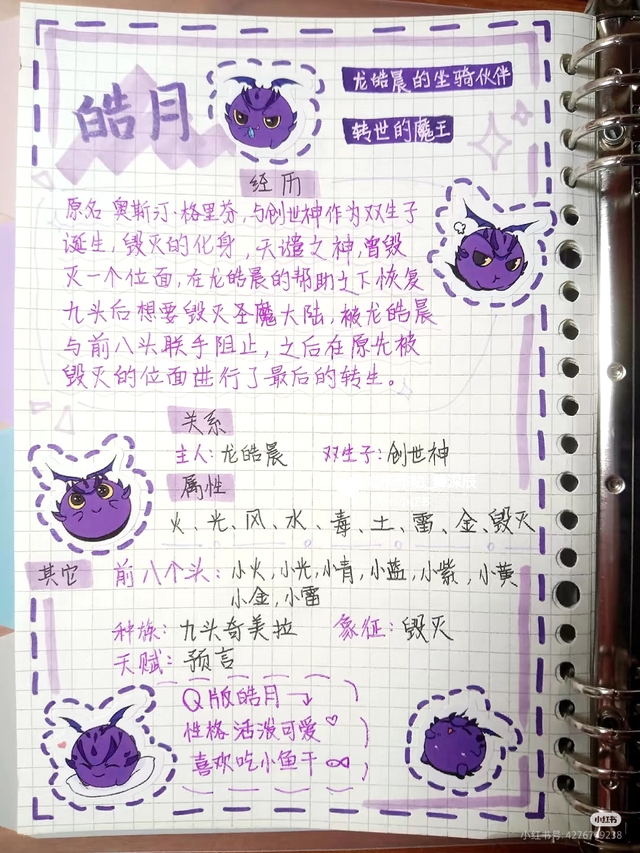 皓月
龙皓晨的坐骑伙伴
转世的魔王
经历
原名奥斯汀·格里芬,与创世神作为双生子
诞生,毁灭的化身,天谴之神,曾毁
灭一个位面,在龙皓晨的帮助之下恢复
九头后想要毁灭圣魔大陆,被龙皓晨
与前八头联手阻止,之后在原先被
毁灭的位面进行了最后的转生。
关系
主人:龙皓晨 双生子:创世神
属性
火、光、风、水、毒、土、雷、金、毁灭
其它 前八个头:小火,小光,小青,小蓝,小紫,小黄
小金,小雷
种族:九头奇美拉 象征:毁灭
天赋:预言
Q版皓月
性格活泼可爱♡
喜欢吃小鱼干
小红书
小红书号:4276749238